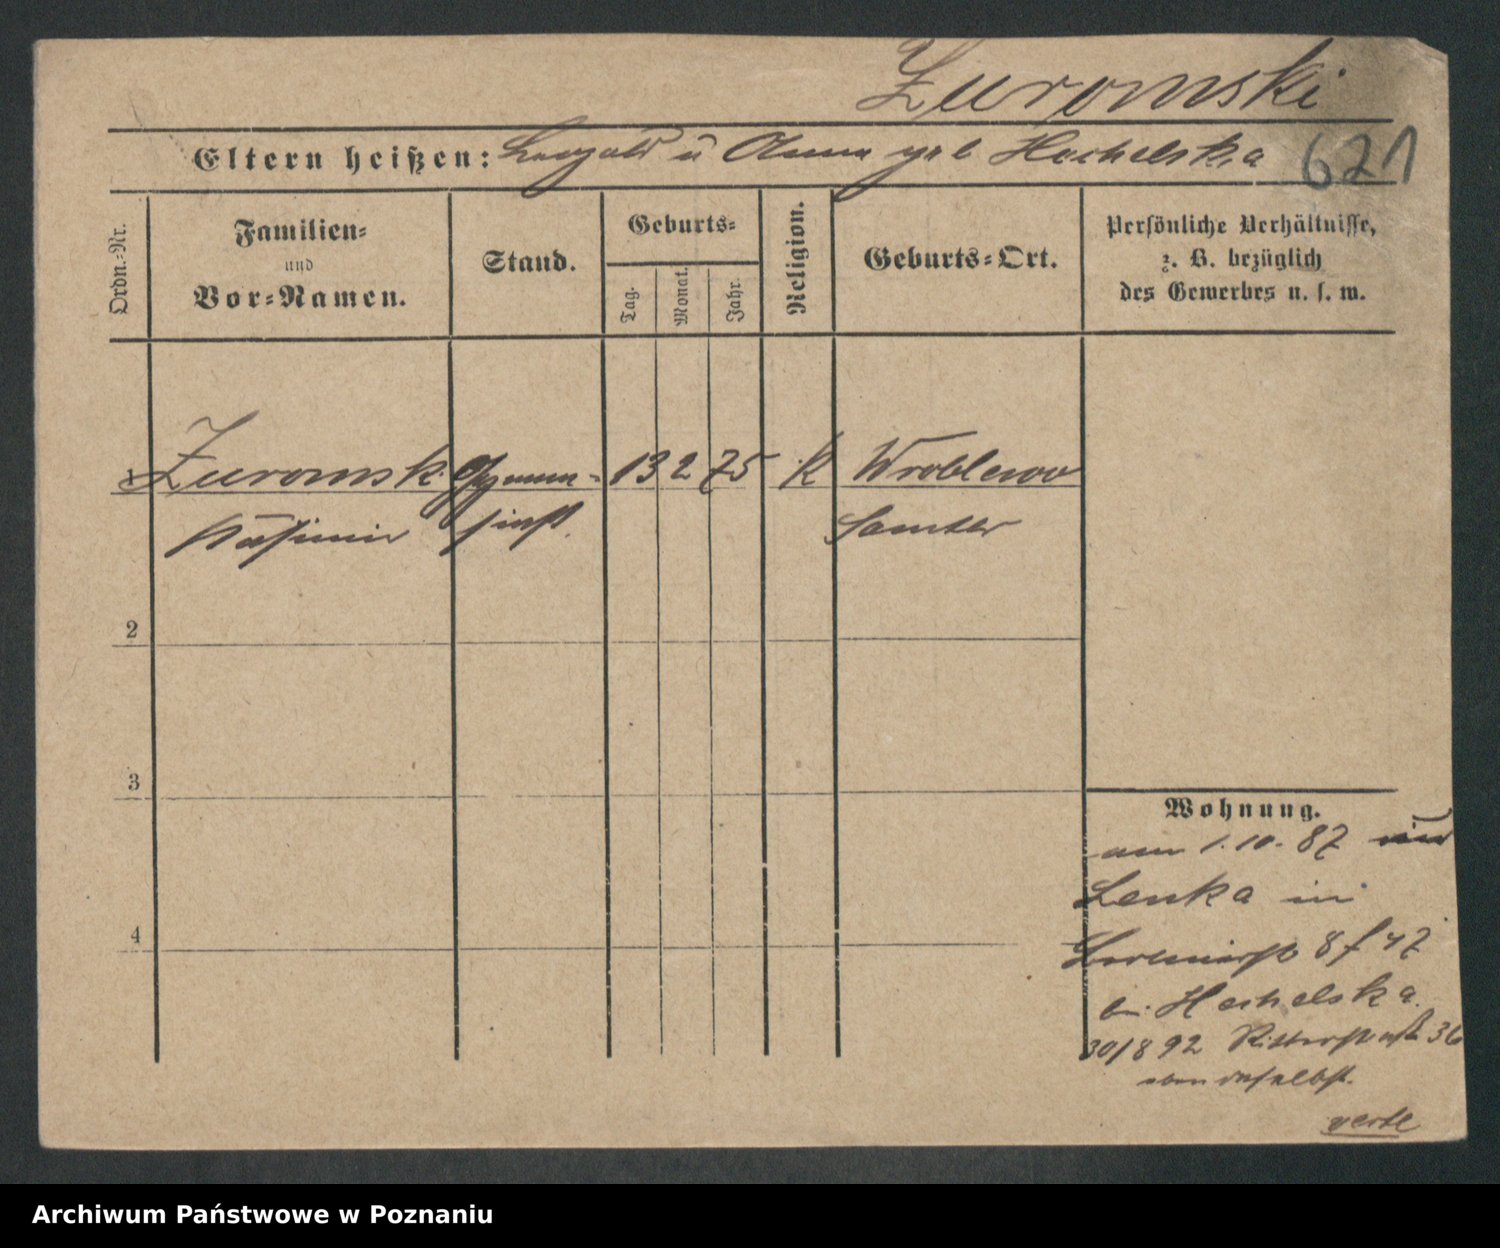 Zuromski
Eltern heißen: Leopold u Anna geb Hechelska 621
Ordn.-Nr.
Familien-
und
Vor-Namen.
Stand.
Geburts-
Tag.
Monat.
Jahr.
Religion.
Geburts-Ort.
Persönliche Verhältnisse,
z. B. bezüglich
des Gewerbes u. s. w.
1 Zuromski Gymna- 13 2 75 k Wroblewo
Kasimir siast. Samter
2
3
4
Wohnung.
am 1.10.87
Lenka in
8 f 47
bei Hechelska.
30/8 92 Ritterstraße 36
eben daselbst.
verte
Archiwum Państwowe w Poznaniu